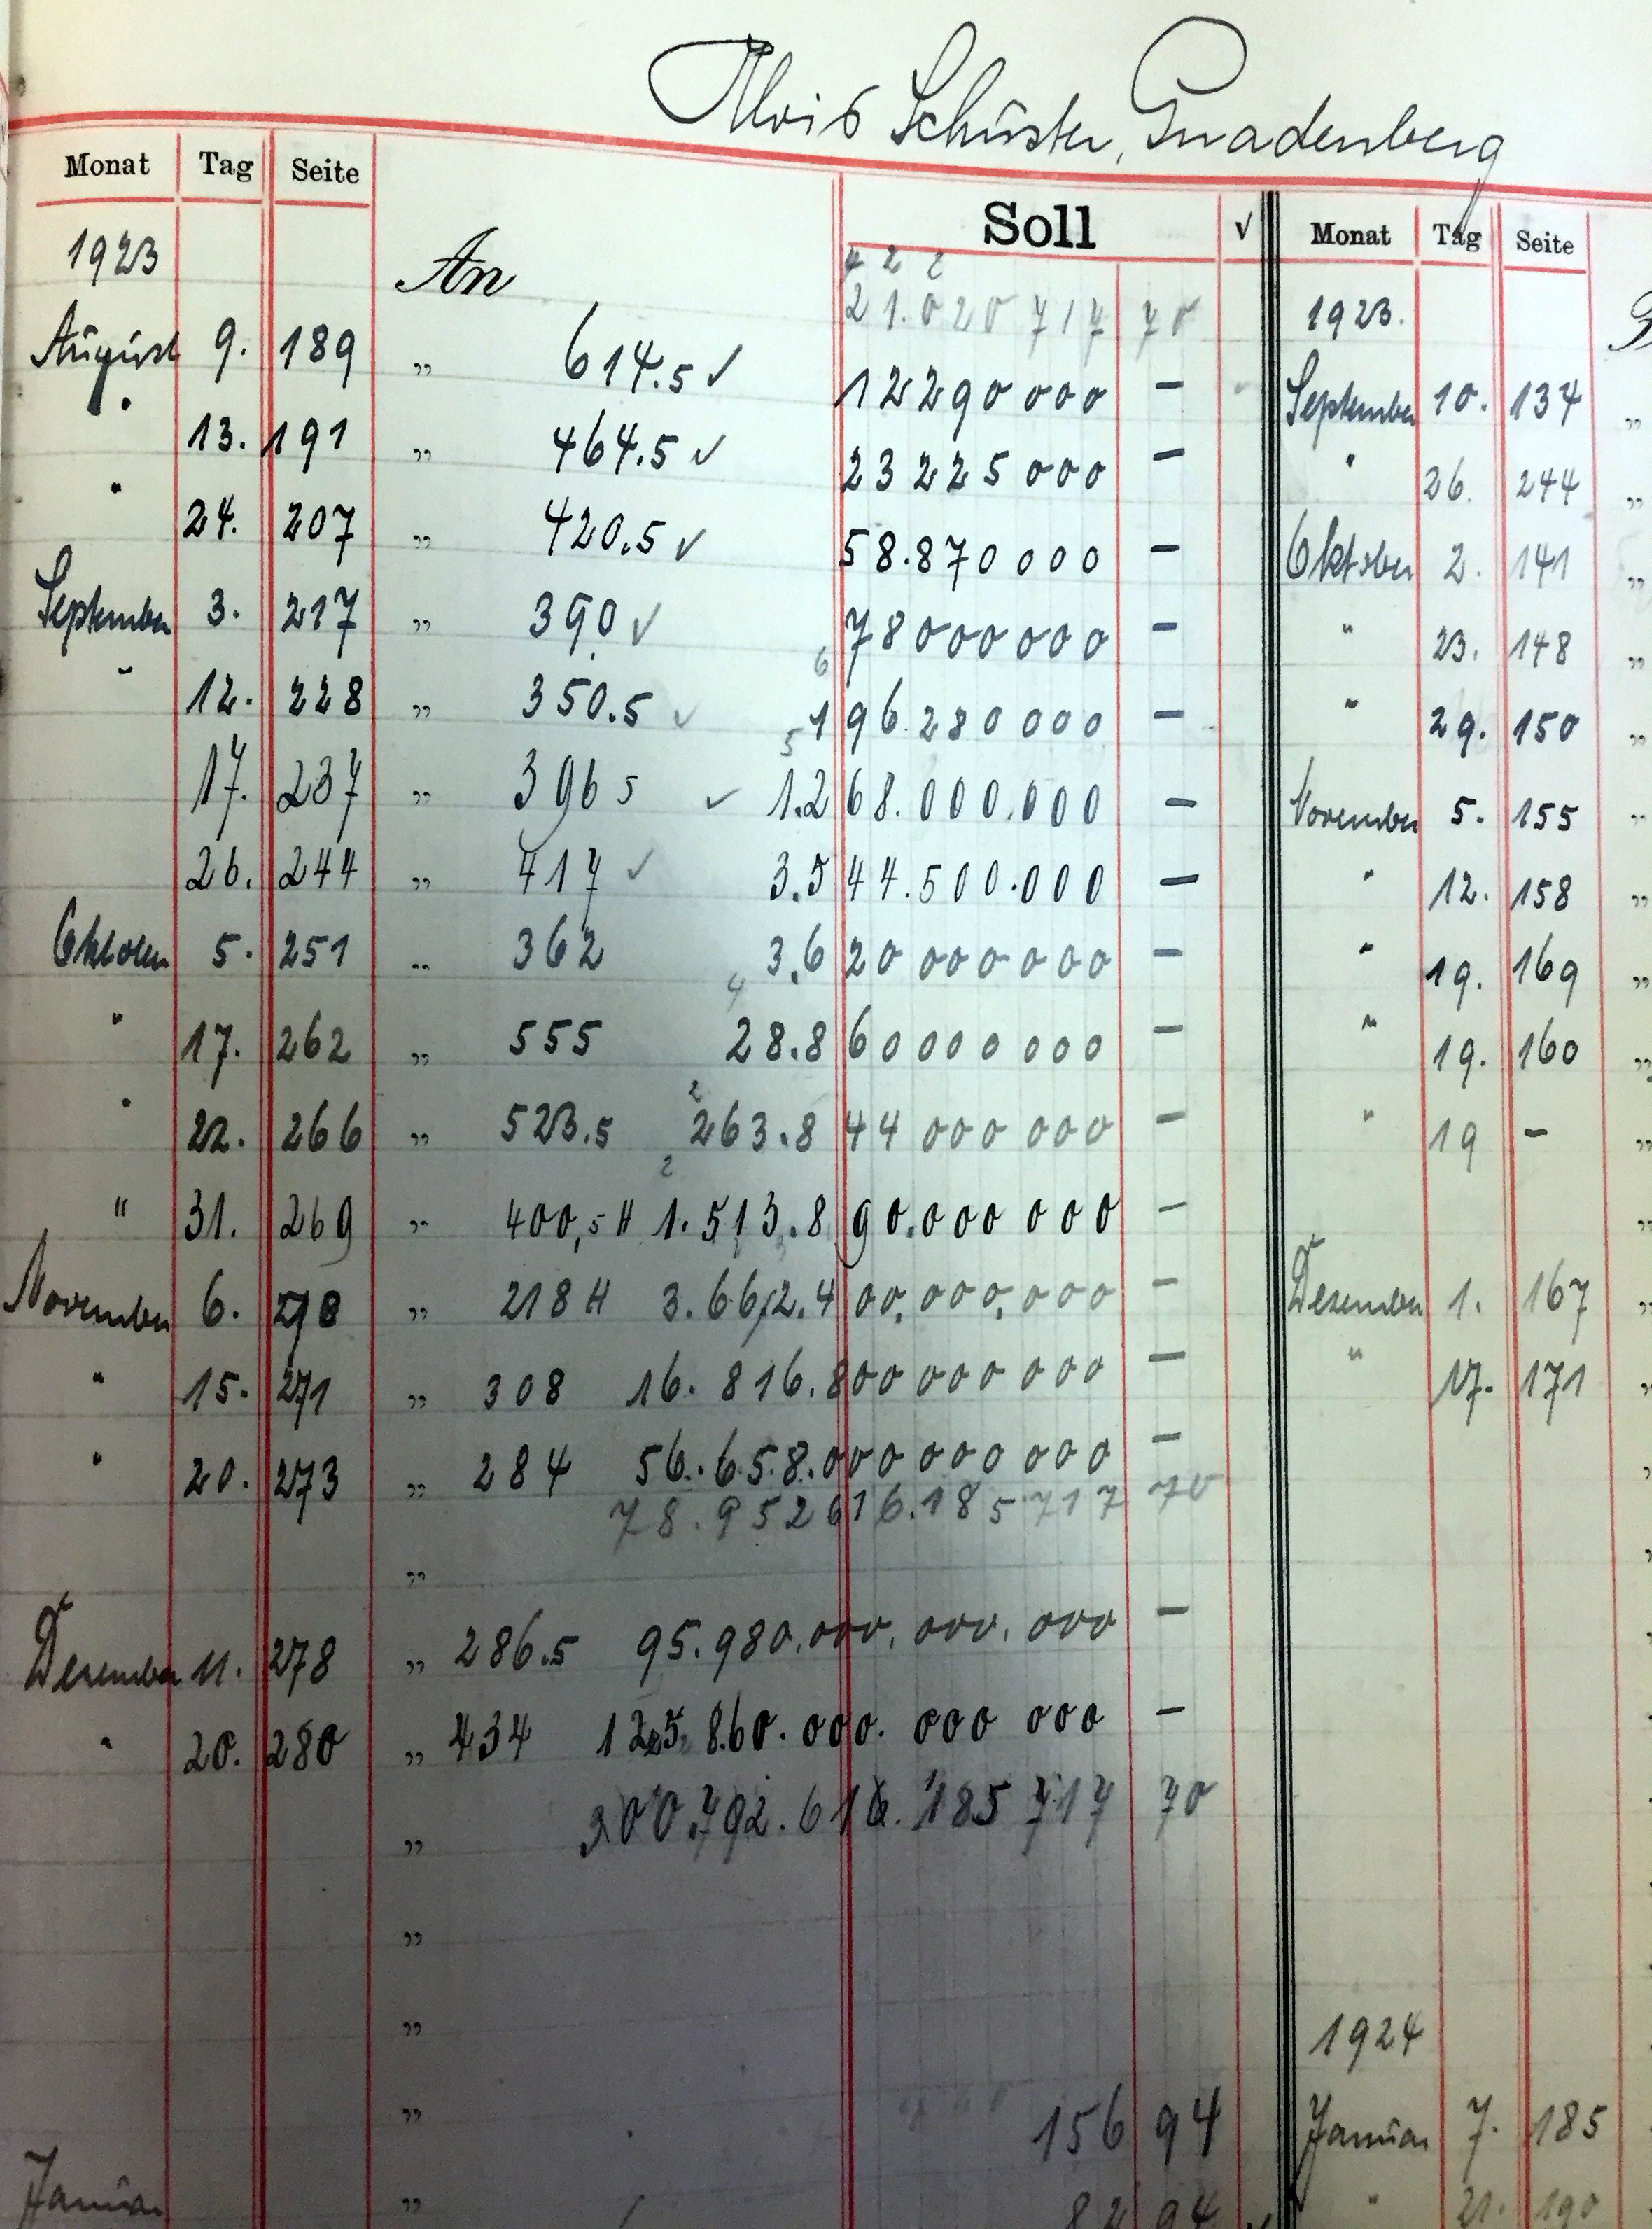 Alois Schuster, Gnadenberg
Monat Tag Seite Soll √ Monat Tag Seite
1923 An
4 2 2
21.020 717 70 1923.
August 9. 189 „ 614.5 ✓ 12 290 000 — September 10. 134 „
" 13. 191 „ 464.5 ✓ 23 225 000 — " 26. 244 „
" 24. 207 „ 420.5 ✓ 58.870 000 — Oktober 2. 141 „
September 3. 217 „ 390 ✓ 78 000 000 — " 23. 148 „
6
" 12. 228 „ 350.5 ✓ 196.280 000 — " 29. 150 „
5
17. 237 „ 396 5 ✓ 1.268.000.000 — November 5. 155 „
26. 244 „ 417 ✓ 3.544.500.000 — " 12. 158 „
Oktober 5. 251 „ 362 3.620 000 000 — " 19. 169 „
4
" 17. 262 „ 555 28.860 000 000 — " 19. 160 „
2
" 22. 266 „ 523.5 263.844 000 000 — " 19 — „
2
" 31. 269 „ 400,5 H 1.513.890.000 000 — „
November 6. „ 218 H 3.662.400.000.000 — Dezember 1. 167 „
" 15. 271 „ 308 16.816.800 000 000 — " 17. 171 „
" 20. 273 „ 284 56.658.000 000 000 —
78.952 616.185 717 70
„
Dezember 11. 278 „ 286.5 95.980.000.000.000 —
" 20. 280 „ 434 125 860.000.000 000 —
„ 300.792.616.185 717 70
„
„ 1924
„ 156 94 Januar 7. 185
Januar „ 82 94 ✓ " 21. 190